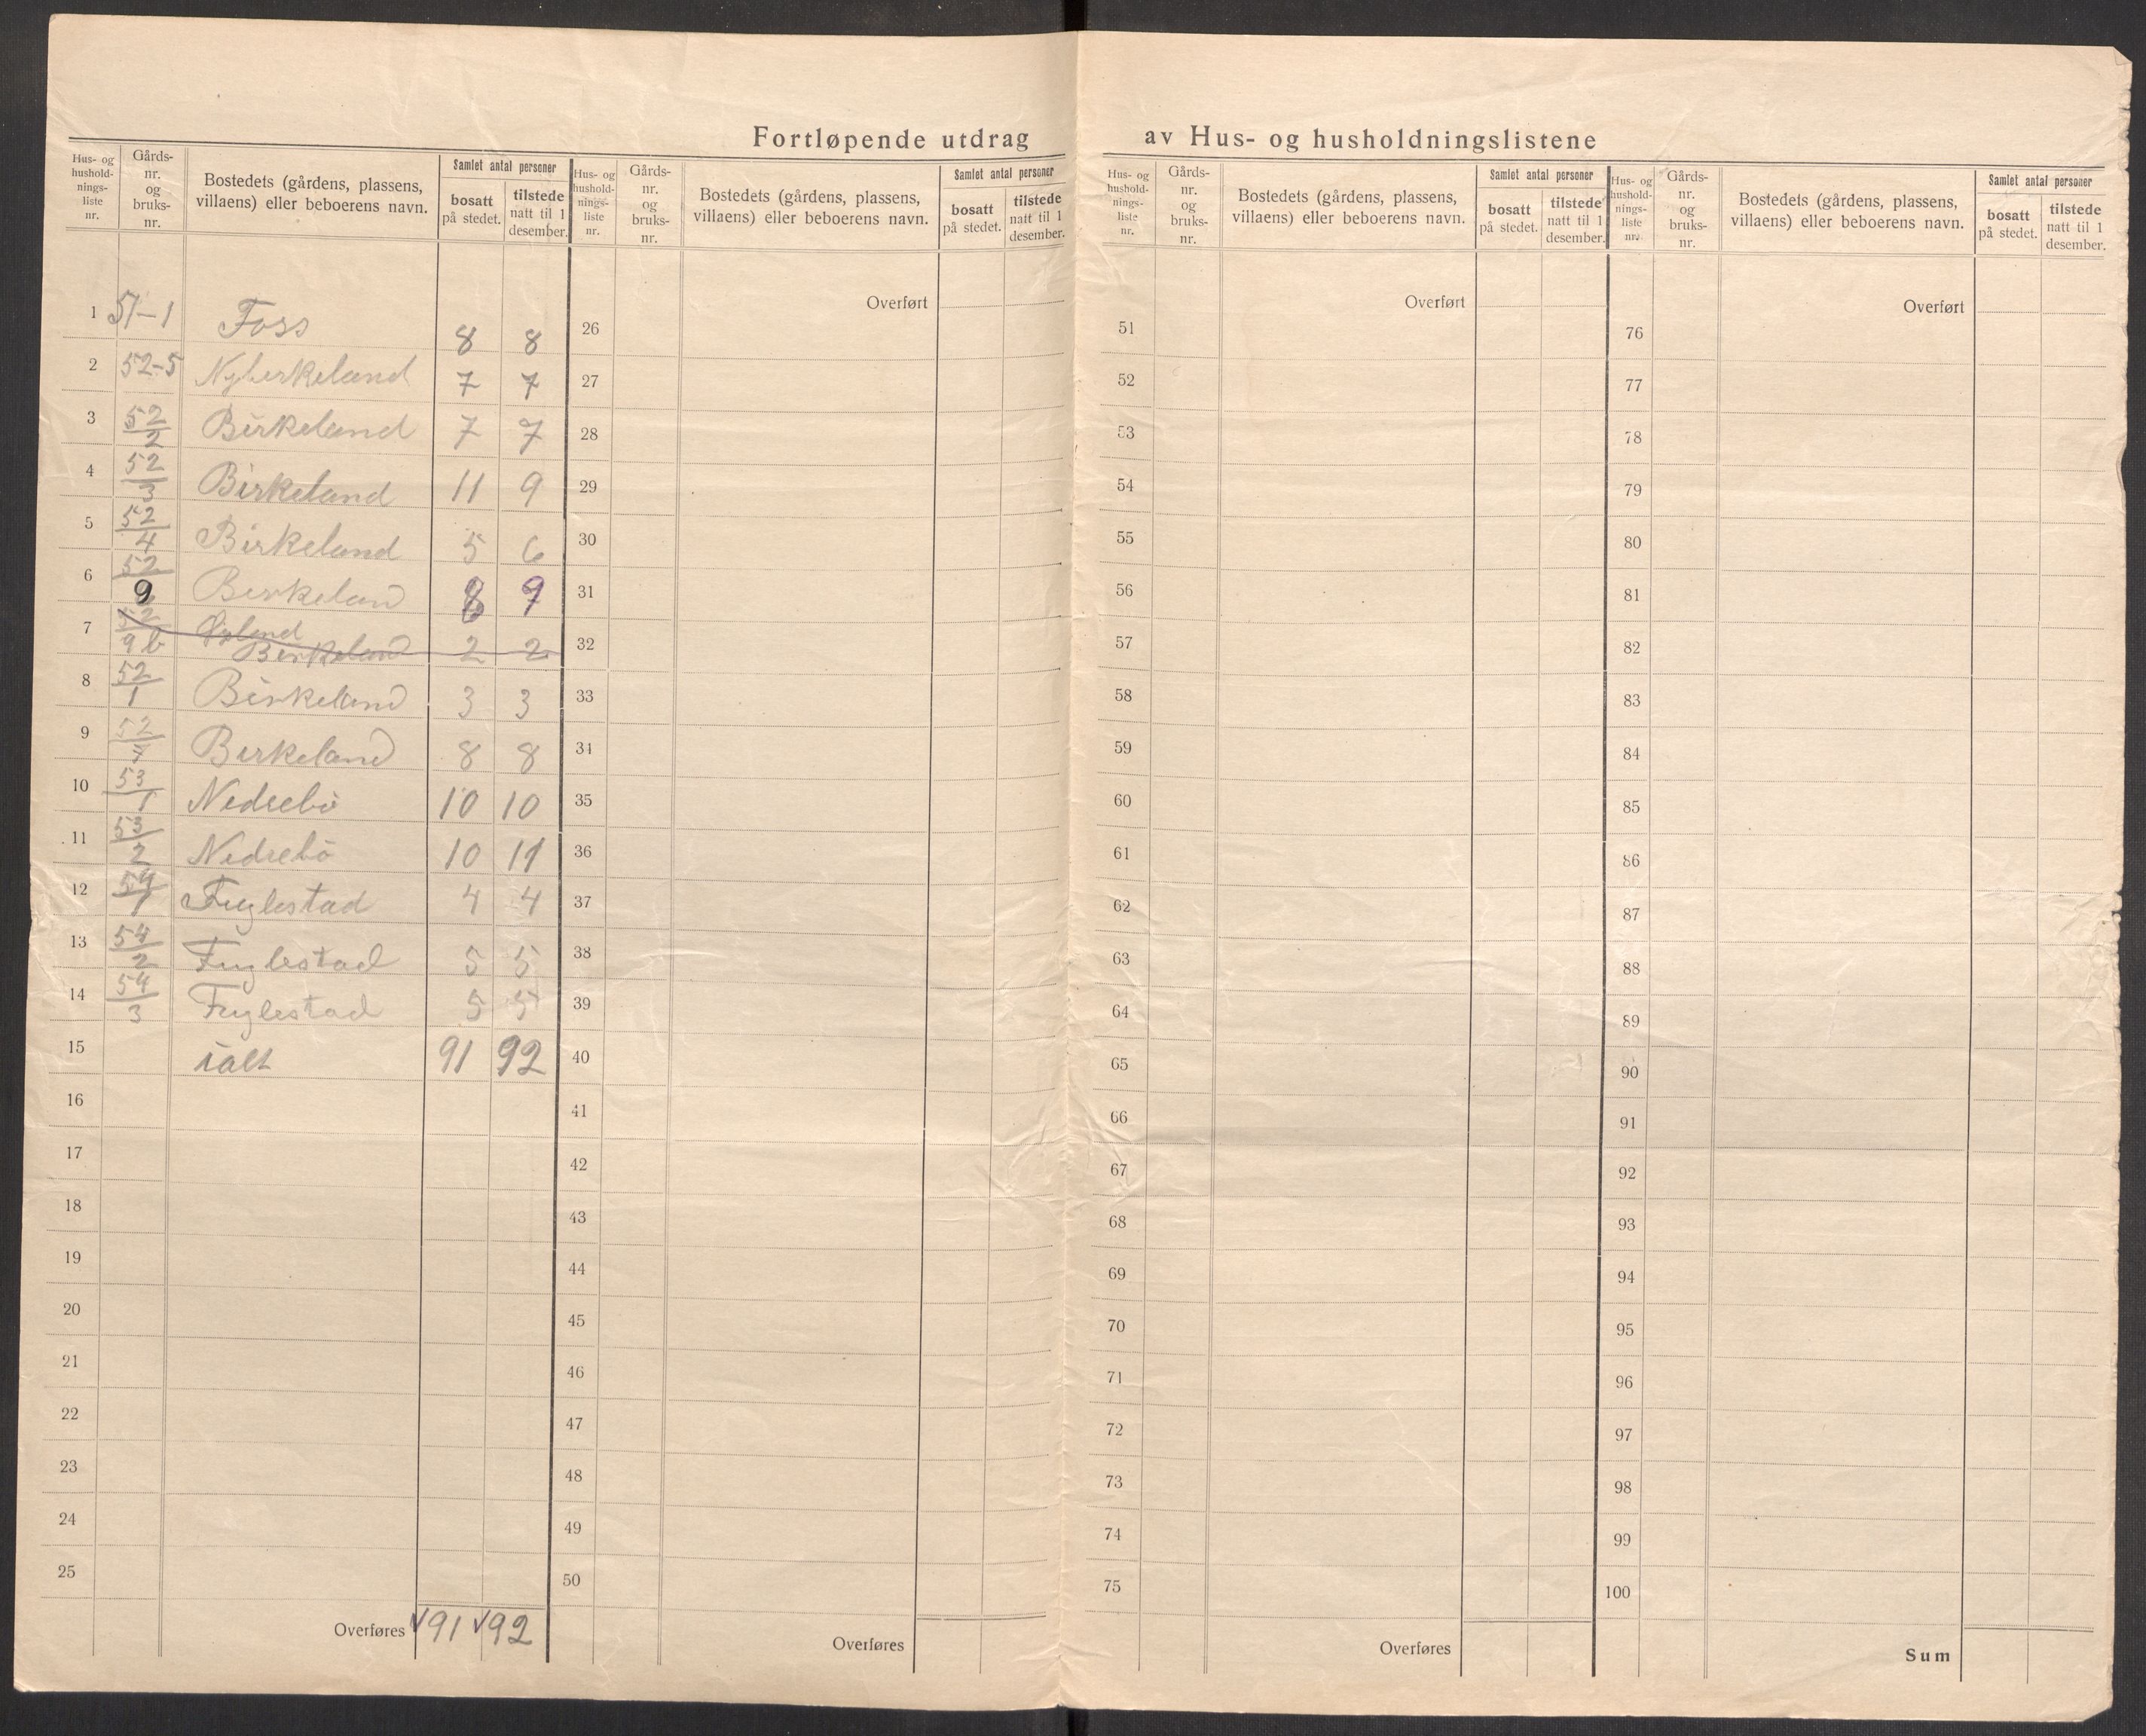 Fortløpende utdrag av Hus- og husholdningslistene
Hus- og husholdnings-liste nr. Gårds-nr. og bruks-nr. Bostedets (gårdens, plassens, villaens) eller beboerens navn. Samlet antal personer bosatt på stedet. tilstede natt til 1 desember.
1 51-1 Foss 8 8
2 52-5 Nyberkeland 7 7
3 52/2 Birkeland 7 7
4 52/3 Birkeland 11 9
5 52/4 Birkeland 5 6
6 52/9 Berkeland 8 9
7 52/9 b Birkeland 2 2
8 52/1 Birkeland 3 3
9 52/7 Berkeland 8 8
10 53/1 Nedrebö 10 10
11 53/2 Nedrebö 10 11
12 54/1 Fuglestad 4 4
13 54/2 Fuglestad 5 5
14 54/3 Fuglestad 5 5
15 ialt 91 92
16
17
18
19
20
21
22
23
24
25
Overføres 91 92
Hus- og husholdnings-liste nr. Gårds-nr. og bruks-nr. Bostedets (gårdens, plassens, villaens) eller beboerens navn. Samlet antal personer bosatt på stedet. tilstede natt til 1 desember.
Overført
26
27
28
29
30
31
32
33
34
35
36
37
38
39
40
41
42
43
44
45
46
47
48
49
50
Overføres
Hus- og husholdnings-liste nr. Gårds-nr. og bruks-nr. Bostedets (gårdens, plassens, villaens) eller beboerens navn. Samlet antal personer bosatt på stedet. tilstede natt til 1 desember.
Overført
51
52
53
54
55
56
57
58
59
60
61
62
63
64
65
66
67
68
69
70
71
72
73
74
75
Overføres
Hus- og husholdnings-liste nr. Gårds-nr. og bruks-nr. Bostedets (gårdens, plassens, villaens) eller beboerens navn. Samlet antal personer bosatt på stedet. tilstede natt til 1 desember.
Overført
76
77
78
79
80
81
82
83
84
85
86
87
88
89
90
91
92
93
94
95
96
97
98
99
100
Sum